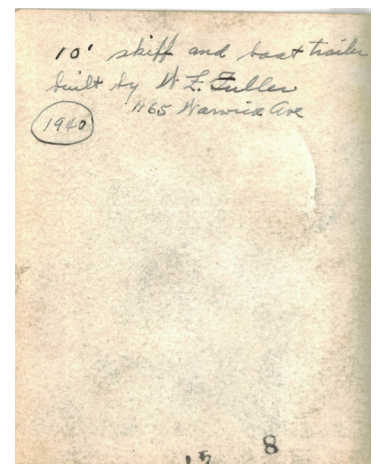 10' skiff and boat trailer
built by W L. Fuller
1165 Warwick Ave
1940
8